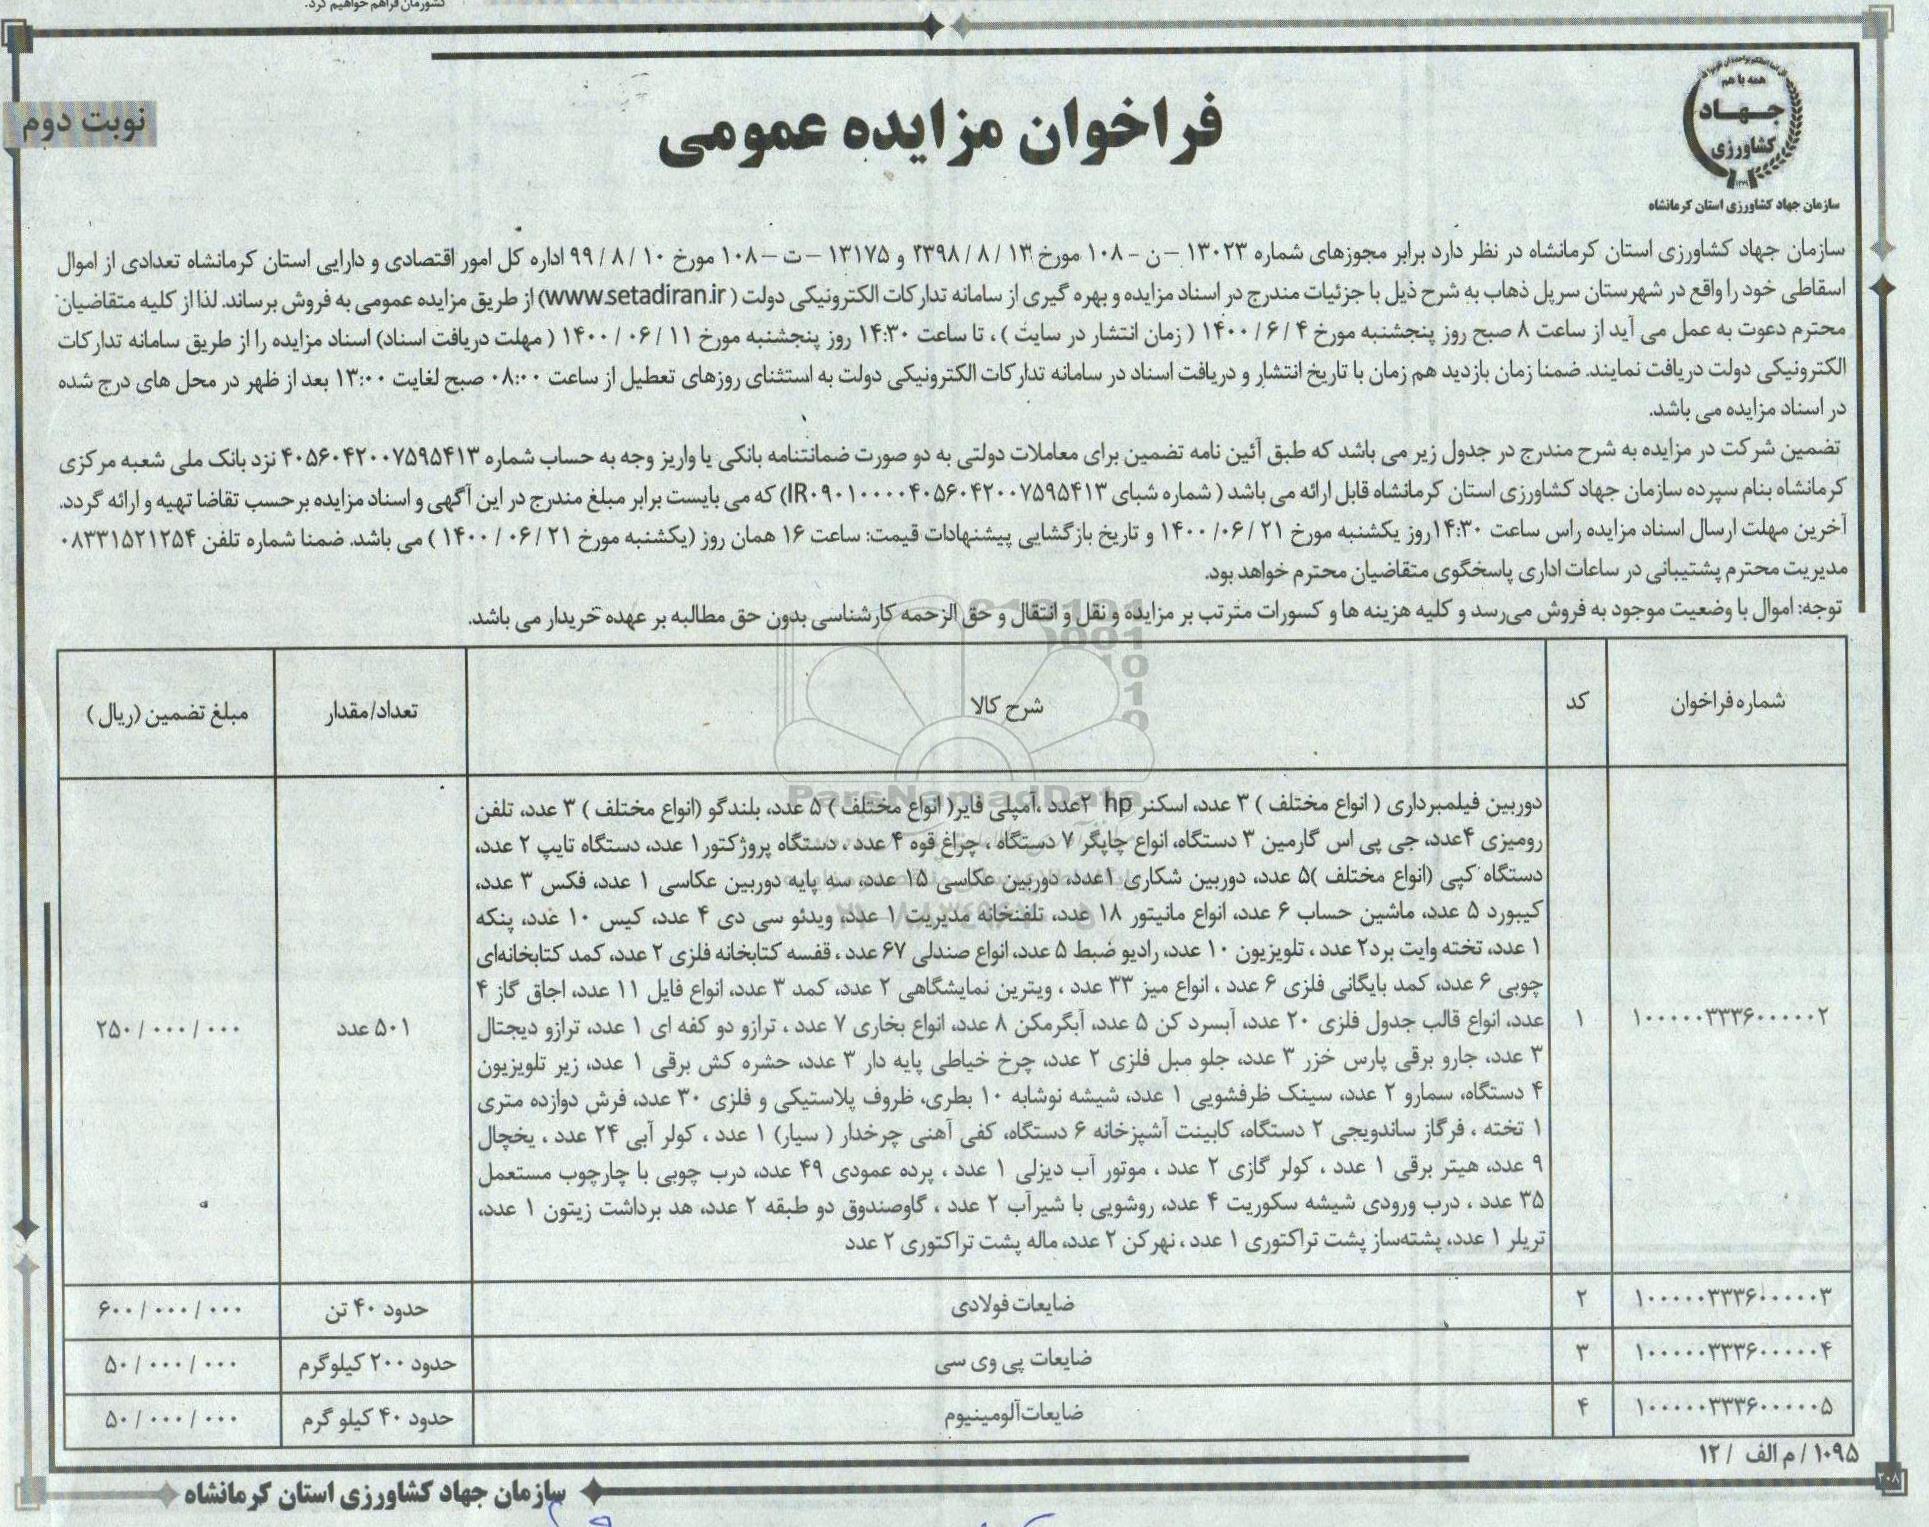 کشورمان فراهم خواهیم کرد.
همه با هم
جهاد
کشاورزی
سازمان جهاد کشاورزی استان کرمانشاه
نوبت دوم
فراخوان مزایده عمومی
سازمان جهاد کشاورزی استان کرمانشاه در نظر دارد برابر مجوزهای شماره ۱۳۰۲۳ – ن – ۱۰۸ مورخ ۱۳ / ۸ / ۲۳۹۸ و ۱۳۱۷۵ – ت – ۱۰۸ مورخ ۱۰ / ۸ / ۹۹ اداره کل امور اقتصادی و دارایی استان کرمانشاه تعدادی از اموال
اسقاطی خود را واقع در شهرستان سرپل ذهاب به شرح ذیل با جزئیات مندرج در اسناد مزایده و بهره گیری از سامانه تدارکات الکترونیکی دولت ( www.setadiran.ir) از طریق مزایده عمومی به فروش برساند. لذا از کلیه متقاضیان
محترم دعوت به عمل می آید از ساعت ۸ صبح روز پنجشنبه مورخ ۴ / ۶ / ۱۴۰۰ ( زمان انتشار در سایت ) ، تا ساعت ۱۴:۳۰ روز پنجشنبه مورخ ۱۱ / ۰۶ / ۱۴۰۰ ( مهلت دریافت اسناد) اسناد مزایده را از طریق سامانه تدارکات
الکترونیکی دولت دریافت نمایند. ضمنا زمان بازدید هم زمان با تاریخ انتشار و دریافت اسناد در سامانه تدارکات الکترونیکی دولت به استثنای روزهای تعطیل از ساعت ۰۸:۰۰ صبح لغایت ۱۳:۰۰ بعد از ظهر در محل های درج شده
در اسناد مزایده می باشد.
تضمین شرکت در مزایده به شرح مندرج در جدول زیر می باشد که طبق آئین نامه تضمین برای معاملات دولتی به دو صورت ضمانتنامه بانکی یا واریز وجه به حساب شماره ۴۰۵۶۰۴۲۰۰۷۵۹۵۴۱۳ نزد بانک ملی شعبه مرکزی
کرمانشاه بنام سپرده سازمان جهاد کشاورزی استان کرمانشاه قابل ارائه می باشد ( شماره شبای IR۰۹۰۱۰۰۰۰۴۰۵۶۰۴۲۰۰۷۵۹۵۴۱۳) که می بایست برابر مبلغ مندرج در این آگهی و اسناد مزایده برحسب تقاضا تهیه و ارائه گردد.
آخرین مهلت ارسال اسناد مزایده راس ساعت ۱۴:۳۰روز یکشنبه مورخ ۲۱ / ۰۶/ ۱۴۰۰ و تاریخ بازگشایی پیشنهادات قیمت: ساعت ۱۶ همان روز (یکشنبه مورخ ۲۱ / ۰۶ / ۱۴۰۰ ) می باشد. ضمنا شماره تلفن ۰۸۳۳۱۵۲۱۲۵۴
مدیریت محترم پشتیبانی در ساعات اداری پاسخگوی متقاضیان محترم خواهد بود.
توجه: اموال با وضعیت موجود به فروش می‌رسد و کلیه هزینه ها و کسورات مترتب بر مزایده و نقل و انتقال و حق الزحمه کارشناسی بدون حق مطالبه بر عهده خریدار می باشد.
شماره فراخوان کد شرح کالا تعداد/مقدار مبلغ تضمین (ریال)
دوربین فیلمبرداری ( انواع مختلف ) ۳ عدد، اسکنر hp ۲عدد ،آمپلی فایر( انواع مختلف ) ۵ عدد، بلندگو (انواع مختلف ) ۳ عدد، تلفن
رومیزی ۴عدد، جی پی اس گارمین ۳ دستگاه، انواع چاپگر ۷ دستگاه ، چراغ قوه ۴ عدد ، دستگاه پروژکتور۱ عدد، دستگاه تایپ ۲ عدد،
دستگاه کپی (انواع مختلف )۵ عدد، دوربین شکاری ۱عدد، دوربین عکاسی ۱۵ عدد، سه پایه دوربین عکاسی ۱ عدد، فکس ۳ عدد،
کیبورد ۵ عدد، ماشین حساب ۶ عدد، انواع مانیتور ۱۸ عدد، تلفنخانه مدیریت ۱ عدد، ویدئو سی دی ۴ عدد، کیس ۱۰ عدد، پنکه
۱ عدد، تخته وایت برد۲ عدد ، تلویزیون ۱۰ عدد، رادیو ضبط ۵ عدد، انواع صندلی ۶۷ عدد ، قفسه کتابخانه فلزی ۲ عدد، کمد کتابخانه‌ای
چوبی ۶ عدد، کمد بایگانی فلزی ۶ عدد ، انواع میز ۳۳ عدد ، ویترین نمایشگاهی ۲ عدد، کمد ۳ عدد، انواع فایل ۱۱ عدد، اجاق گاز ۴
۱۰۰۰۰۰۳۳۳۶۰۰۰۰۰۲ ۱ عدد، انواع قالب جدول فلزی ۲۰ عدد، آبسرد کن ۵ عدد، آبگرمکن ۸ عدد، انواع بخاری ۷ عدد ، ترازو دو کفه ای ۱ عدد، ترازو دیجتال ۵۰۱ عدد ۲۵۰/۰۰۰/۰۰۰
۳ عدد، جارو برقی پارس خزر ۳ عدد، جلو مبل فلزی ۲ عدد، چرخ خیاطی پایه دار ۳ عدد، حشره کش برقی ۱ عدد، زیر تلویزیون
۴ دستگاه، سمارو ۲ عدد، سینک ظرفشویی ۱ عدد، شیشه نوشابه ۱۰ بطری، ظروف پلاستیکی و فلزی ۳۰ عدد، فرش دوازده متری
۱ تخته ، فرگاز ساندویجی ۲ دستگاه، کابینت آشپزخانه ۶ دستگاه، کفی آهنی چرخدار ( سیار) ۱ عدد ، کولر آبی ۲۴ عدد ، یخچال
۹ عدد، هیتر برقی ۱ عدد ، کولر گازی ۲ عدد ، موتور آب دیزلی ۱ عدد ، پرده عمودی ۴۹ عدد، درب چوبی با چارچوب مستعمل
۳۵ عدد ، درب ورودی شیشه سکوریت ۴ عدد، روشویی با شیرآب ۲ عدد ، گاوصندوق دو طبقه ۲ عدد، هد برداشت زیتون ۱ عدد،
تریلر ۱ عدد، پشته‌ساز پشت تراکتوری ۱ عدد ، نهرکن ۲ عدد، ماله پشت تراکتوری ۲ عدد
۱۰۰۰۰۰۳۳۳۶۰۰۰۰۰۳ ۲ ضایعات فولادی حدود ۴۰ تن ۶۰۰/۰۰۰/۰۰۰
۱۰۰۰۰۰۳۳۳۶۰۰۰۰۰۴ ۳ ضایعات پی وی سی حدود ۲۰۰ کیلوگرم ۵۰/۰۰۰/۰۰۰
۱۰۰۰۰۰۳۳۳۶۰۰۰۰۰۵ ۴ ضایعات‌آلومینیوم حدود ۴۰ کیلو گرم ۵۰/۰۰۰/۰۰۰
۱۰۹۵/ م الف / ۱۲
سازمان جهاد کشاورزی استان کرمانشاه
۲۰۸
ParsNamadData